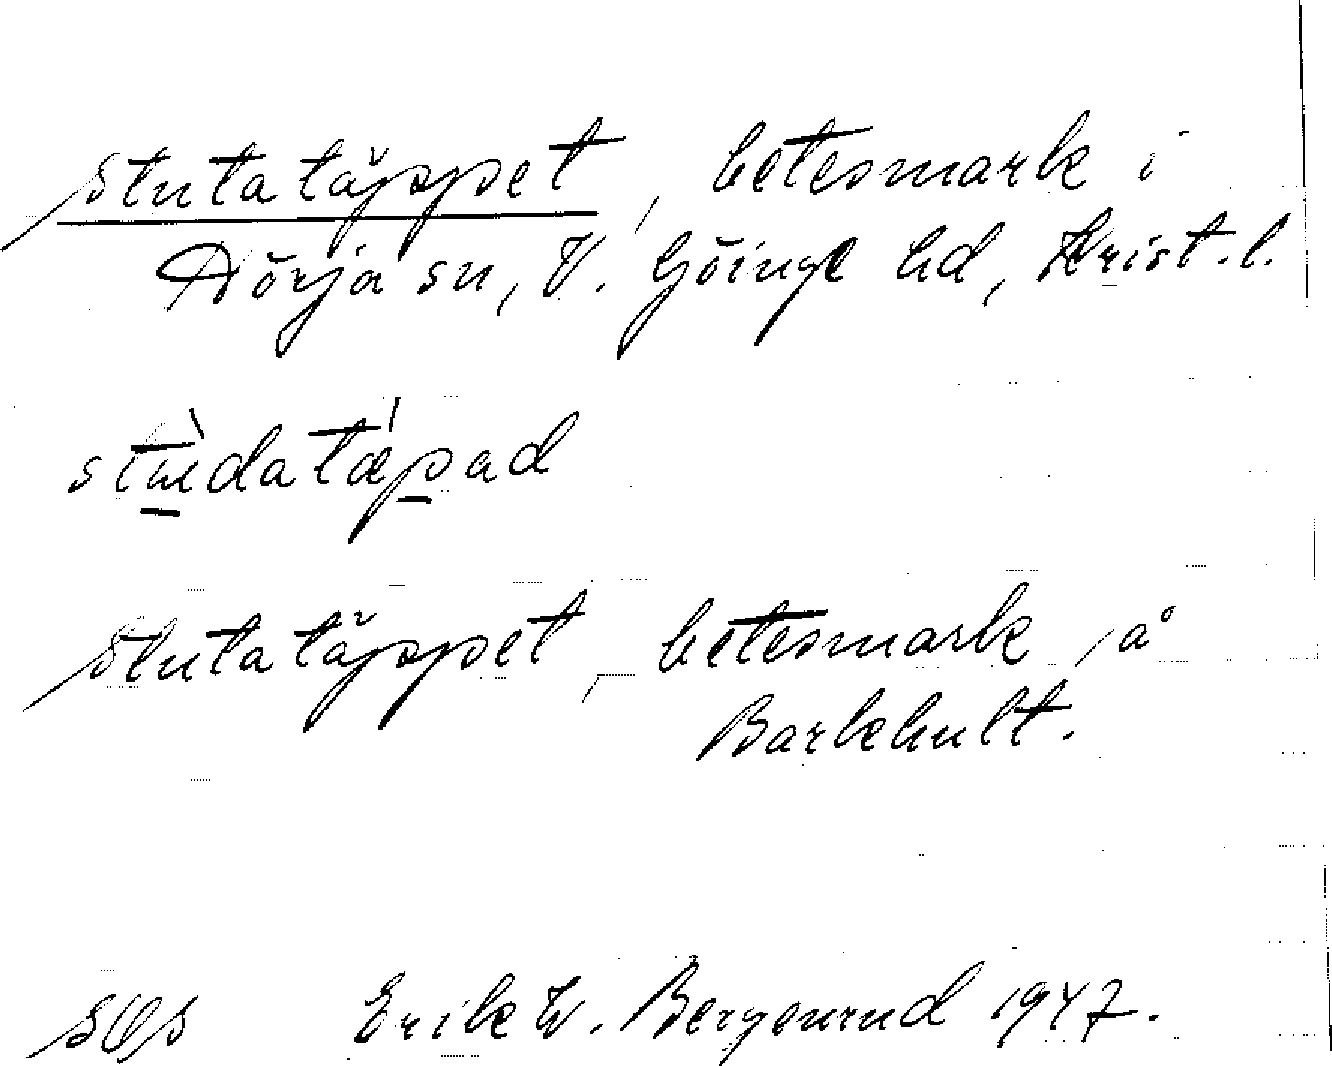 Stutatäppet, betesmark i
Hörja sn, V. Göinge hd, Krist. l.
stù̱datǽp̱ad
Stutatäppet, betesmark å
Barkhult.
Erik W. Bergenrud 1947.